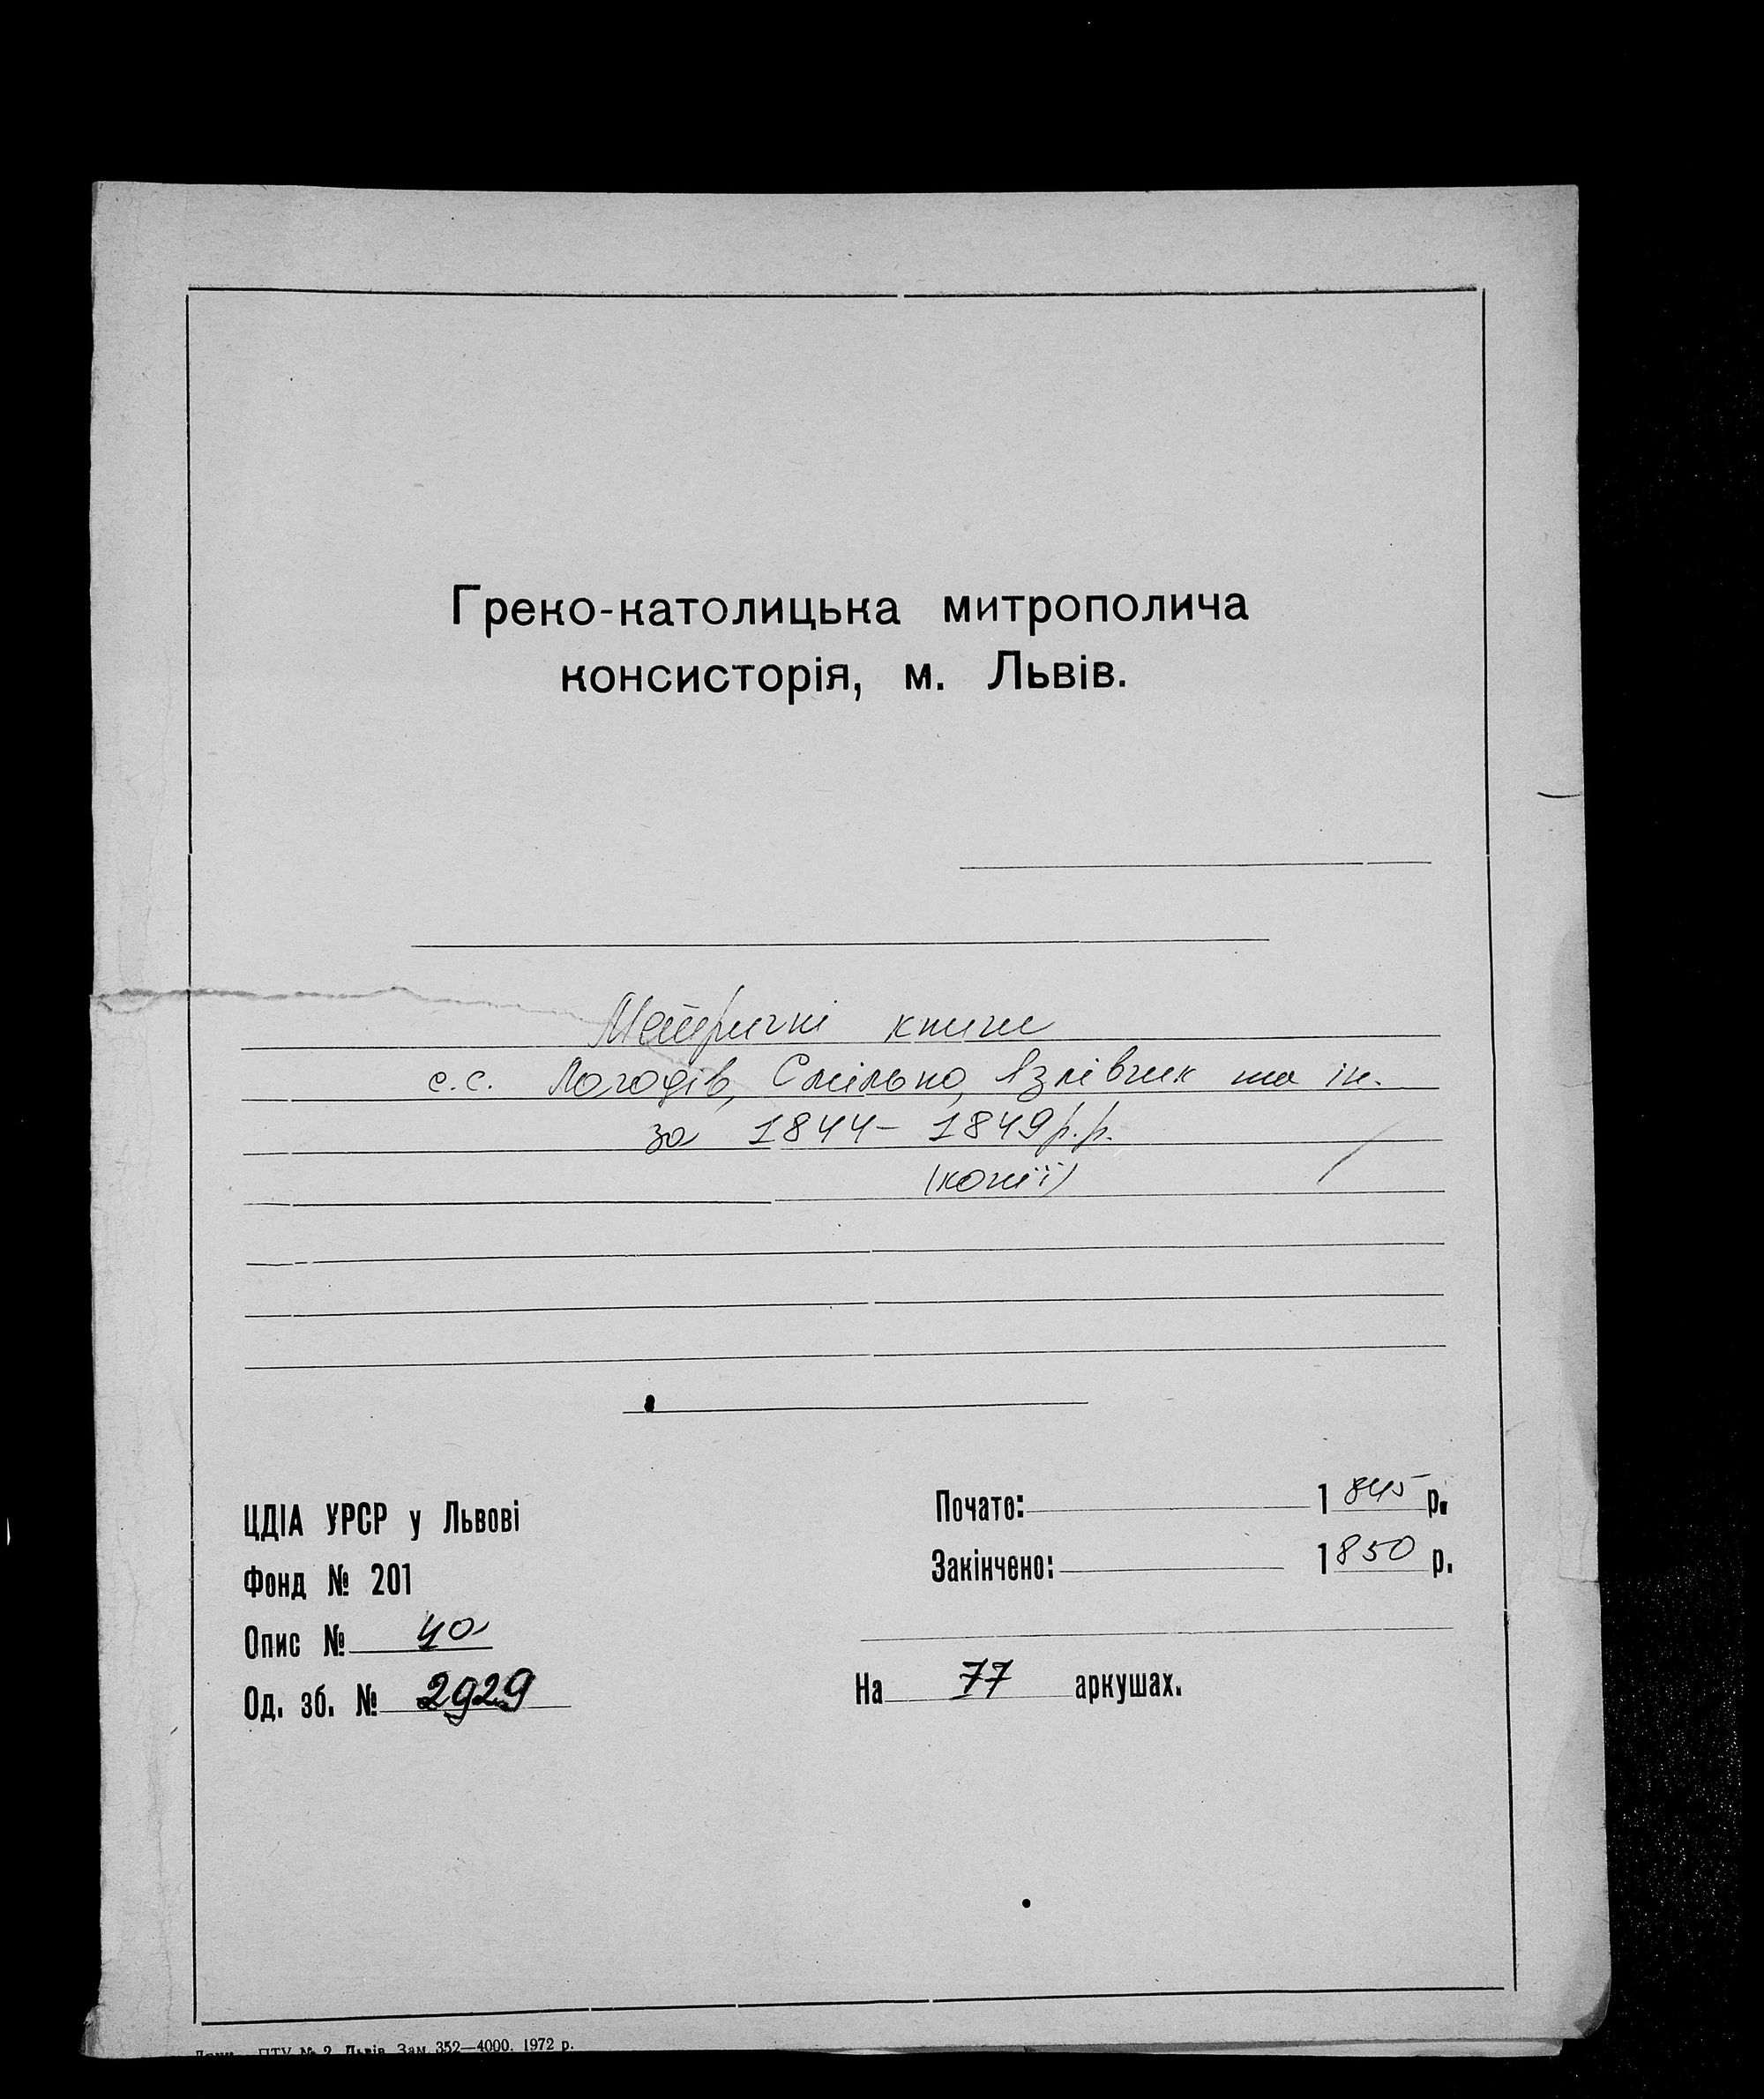 Греко-католицька митрополича
консисторія, м. Львів.
Метричні книги
с.с. Логодів, Смільно, Язлівчик та ін.
за 1844- 1849р.р.
(копії)
ЦДІА УРСР у Львові
Фонд № 201
Опис № 40
Од. зб. № 2929
Почато: 1845 р.
Закінчено: 1850 р.
На 77 аркушах.
ПТУ № 2 Львів Зам. 352—4000. 1972 р.